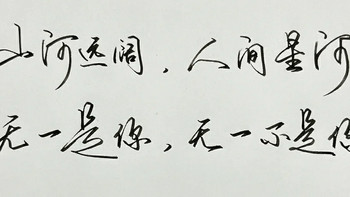 山河远阔，人间星河
无一是你，无一不是你